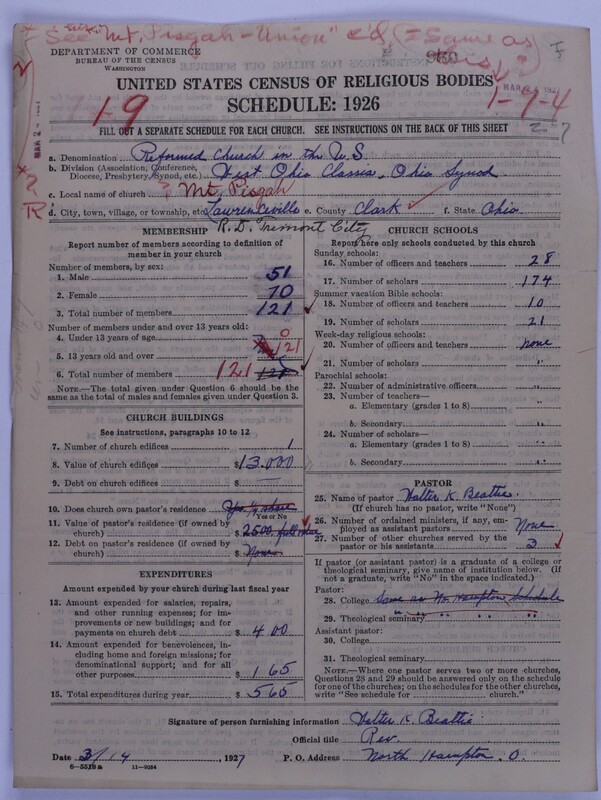 See "Mt. Pisgah - Union" c'd (= Same as this?)
DEPARTMENT OF COMMERCE
BUREAU OF THE CENSUS
WASHINGTON
UNITED STATES CENSUS OF RELIGIOUS BODIES
SCHEDULE: 1926
1-9
1-7-4
FILL OUT A SEPARATE SCHEDULE FOR EACH CHURCH. SEE INSTRUCTIONS ON THE BACK OF THIS SHEET
a. Denomination Reformed Church in the U S
b. Division (Association, Conference, Diocese, Presbytery, Synod, etc.) West Ohio Classis, Ohio Synod
c. Local name of church ? Mt. Pisgah
d. City, town, village, or township, etc. Lawrenceville e. County Clark f. State Ohio
R.D. Tremont City
MEMBERSHIP
Report number of members according to definition of
member in your church
Number of members, by sex:
1. Male 51
2. Female 70
3. Total number of members 121
Number of members under and over 13 years old:
4. Under 13 years of age 0
5. 13 years old and over 121
6. Total number of members 121
NOTE.—The total given under Question 6 should be the
same as the total of males and females given under Question 3.
CHURCH BUILDINGS
See instructions, paragraphs 10 to 12
7. Number of church edifices 1
8. Value of church edifices $ 13,000
9. Debt on church edifices $ —
10. Does church own pastor's residence Yes ¼ share
Yes or No
11. Value of pastor's residence (if owned by
church) $ 2500 full value
12. Debt on pastor's residence (if owned by
church) $ None
EXPENDITURES
Amount expended by your church during last fiscal year
13. Amount expended for salaries, repairs,
and other running expenses; for im-
provements or new buildings; and for
payments on church debt $ 400
14. Amount expended for benevolences, in-
cluding home and foreign missions; for
denominational support; and for all
other purposes $ 165
15. Total expenditures during year $ 565
CHURCH SCHOOLS
Report here only schools conducted by this church
Sunday schools:
16. Number of officers and teachers 28
17. Number of scholars 174
Summer vacation Bible schools:
18. Number of officers and teachers 10
19. Number of scholars 21
Week-day religious schools:
20. Number of officers and teachers none
21. Number of scholars "
Parochial schools:
22. Number of administrative officers "
23. Number of teachers—
a. Elementary (grades 1 to 8) "
b. Secondary "
24. Number of scholars—
a. Elementary (grades 1 to 8) "
b. Secondary "
PASTOR
25. Name of pastor Walter K. Beattie
(If church has no pastor, write "None")
26. Number of ordained ministers, if any, em-
ployed as assistant pastors None
27. Number of other churches served by the
pastor or his assistants 3
If pastor (or assistant pastor) is a graduate of a college or
theological seminary, give name of institution below. (If
not a graduate, write "No" in the space indicated.)
Pastor:
28. College Same as No. Hampton Schedule
29. Theological seminary " " " "
Assistant pastor:
30. College
31. Theological seminary
NOTE.—Where one pastor serves two or more churches,
Questions 28 and 29 should be answered only on the schedule
for one of the churches; on the schedules for the other churches,
write "See schedule for church."
Signature of person furnishing information Walter K. Beattie
Official title Rev.
Date 3/14, 1927 P. O. Address North Hampton, O.
6-5518a 11-9034